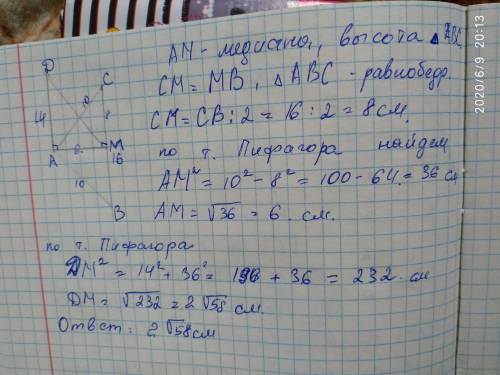 AM - медиана, высота △ ABC
CM = MB, △ ABC - равнобедр.
CM = CB : 2 = 16 : 2 = 8 см.
по т. Пифагора найдем
AM² = 10² - 8² = 100 - 64 = 36 см
AM = √36 = 6 см.
по т. Пифагора
DM² = 14² + 36² = 196 + 36 = 232 см
DM = √232 = 2√58 см.
Ответ: 2√58 см
D
C
14
A
6
M
16
10
B
2020/6/9 20:13